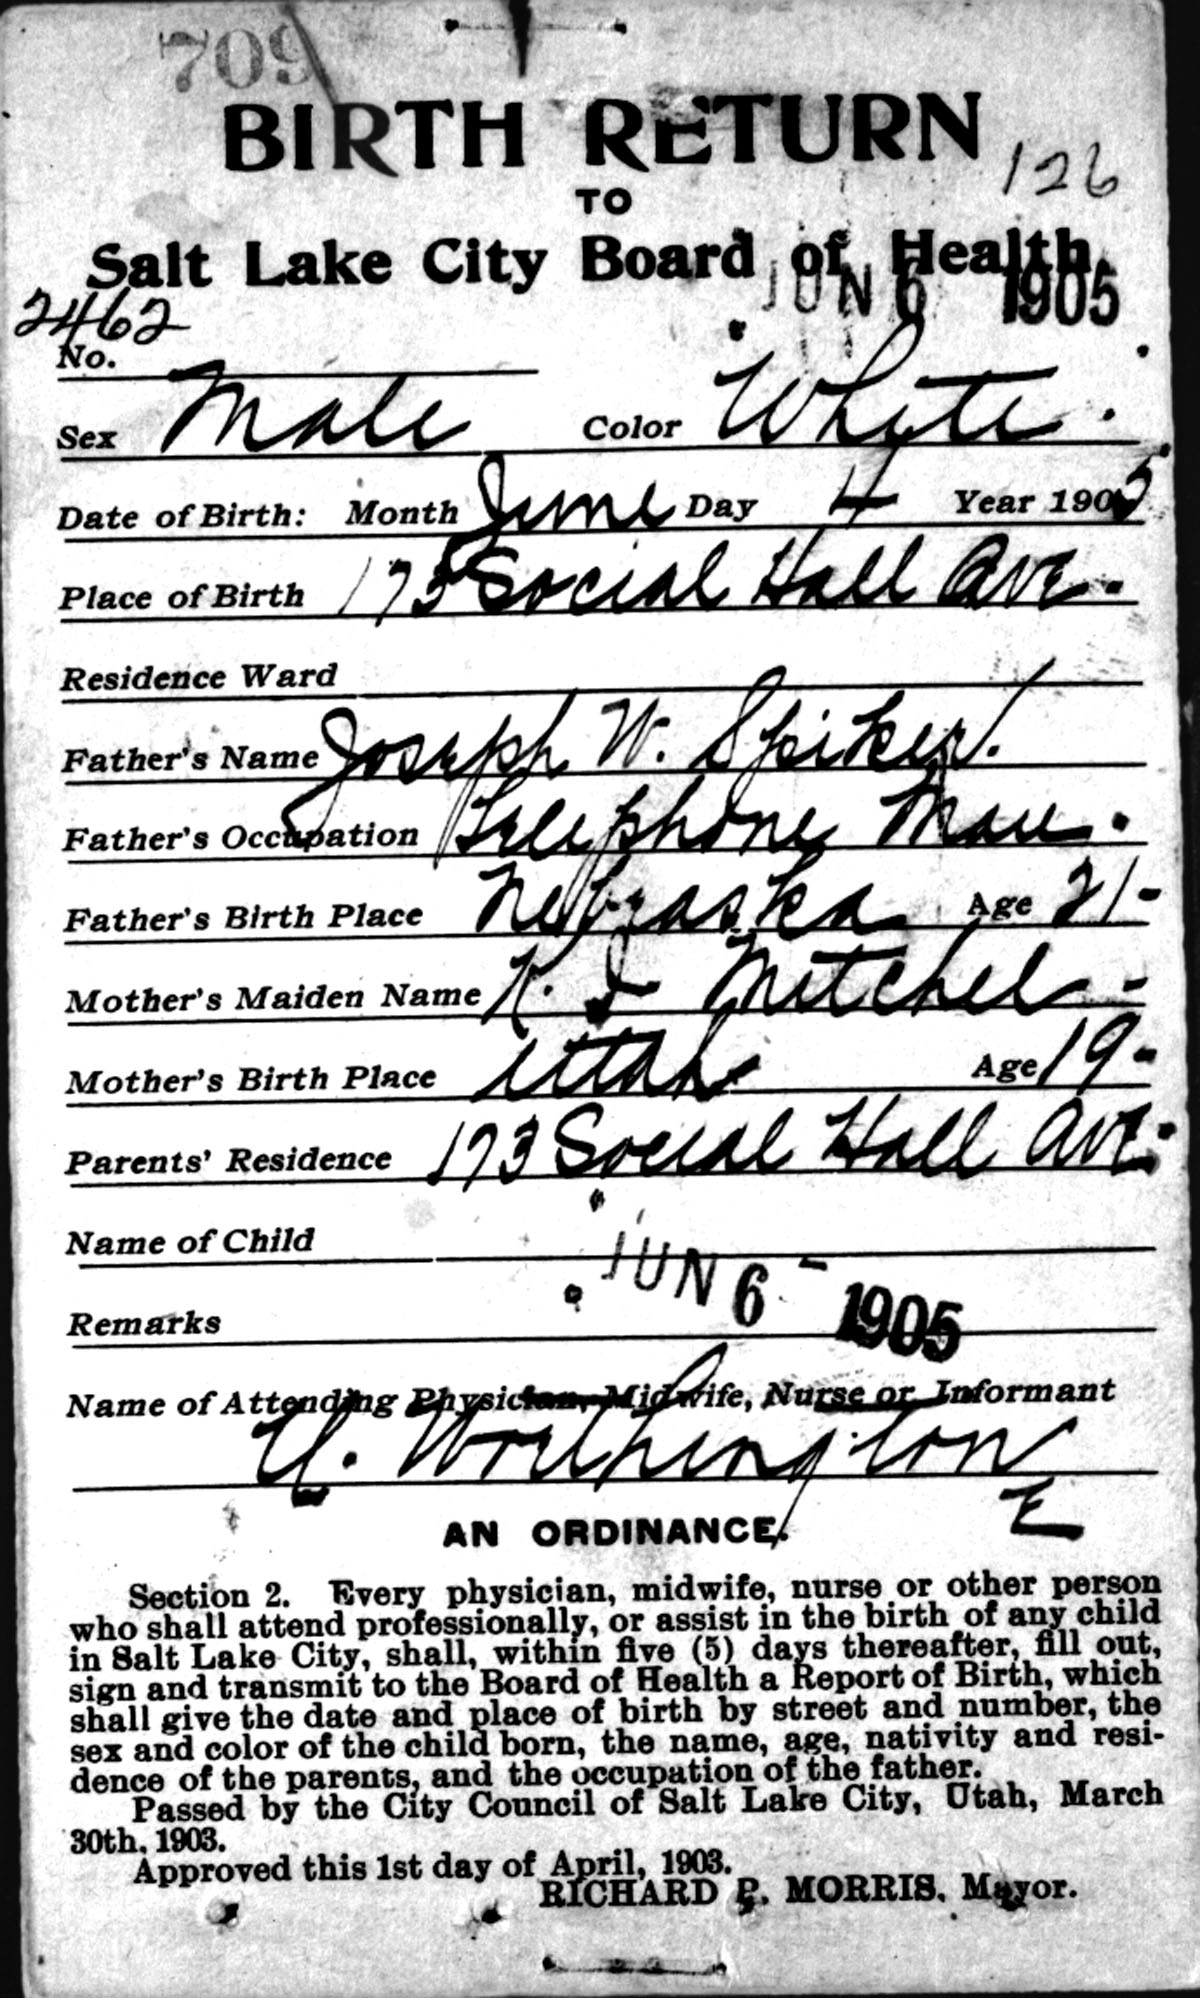 709
BIRTH RETURN
126
TO
Salt Lake City Board of Health
JUN 6 1905
2462
No.
Sex Male Color White.
Date of Birth: Month June Day 4 Year 1905
Place of Birth 173 Social Hall Ave.
Residence Ward
Father's Name Joseph W. Spiker.
Father's Occupation Telephone Man.
Father's Birth Place Nebraska Age 21-
Mother's Maiden Name Mitchel -
Mother's Birth Place Utah Age 19-
Parents' Residence 173 Social Hall Ave.
Name of Child
JUN 6 - 1905
Remarks
Name of Attending Physician, Midwife, Nurse or Informant
Worthington
E
AN ORDINANCE.
Section 2. Every physician, midwife, nurse or other person
who shall attend professionally, or assist in the birth of any child
in Salt Lake City, shall, within five (5) days thereafter, fill out,
sign and transmit to the Board of Health a Report of Birth, which
shall give the date and place of birth by street and number, the
sex and color of the child born, the name, age, nativity and resi-
dence of the parents, and the occupation of the father.
Passed by the City Council of Salt Lake City, Utah, March
30th, 1903.
Approved this 1st day of April, 1903.
RICHARD P. MORRIS, Mayor.